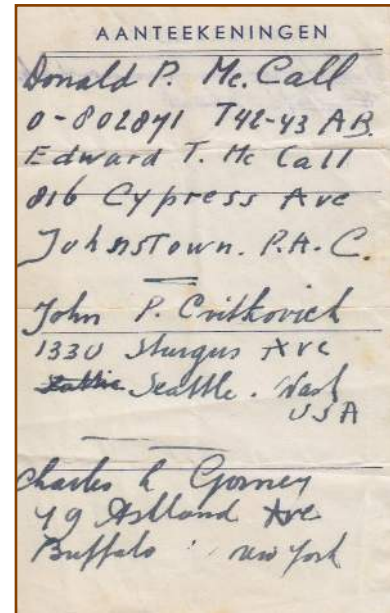 AANTEEKENINGEN
Donald P. Mc. Call
O-802871 T42-43 AB.
Edward T. Mc Call
816 Cypress Ave
Johnstown. P.A.C.
John P. Cvitkovich
1330 Sturgus Ave
Seattle. Wash
USA
Charles L Gorney
79 Ashland Ave
Buffalo new york